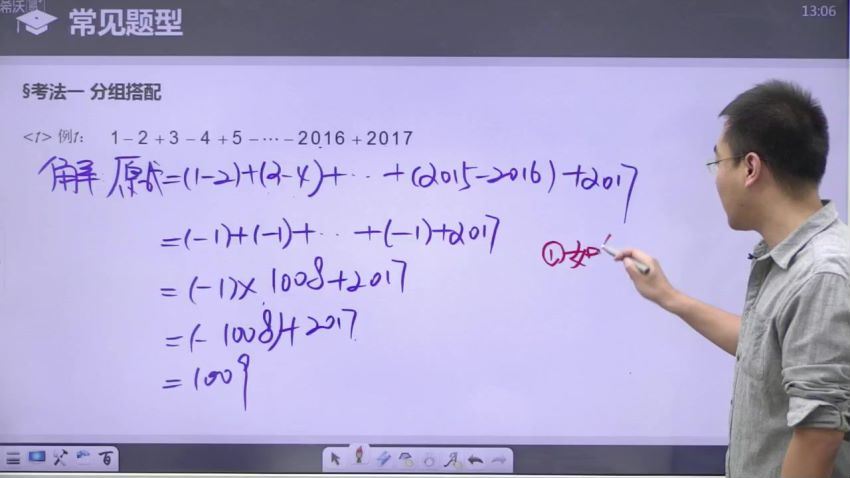 希沃
13:06
常见题型
§考法一 分组搭配
<1> 例1： 1－2＋3－4＋5－…－2016＋2017
解 原式=(1-2)+(3-4)+…+(2015-2016)+2017
=(-1)+(-1)+…+(-1)+2017
①如
=(-1)×1008+2017
=(-1008)+2017
=1009
百